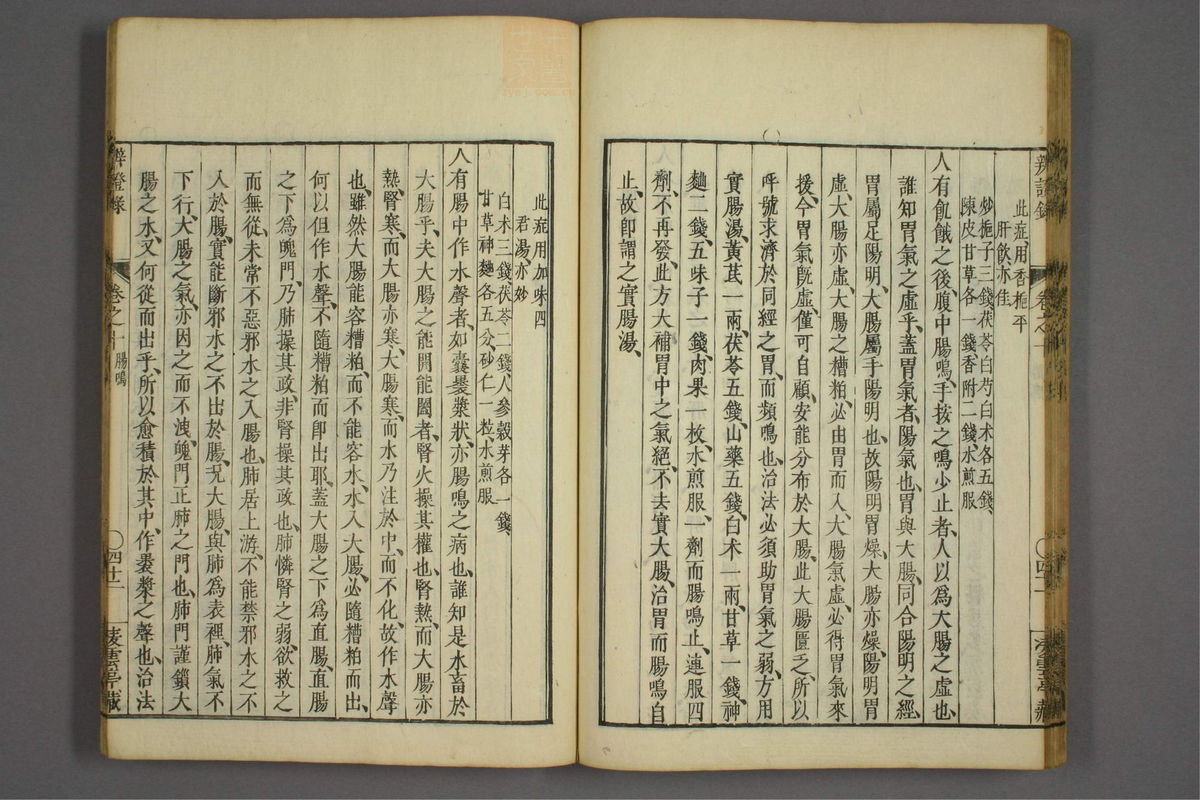 辨證錄
卷之一
此症用香梔平
肝飲亦佳
炒梔子三錢茯苓白芍白朮各五錢、
陳皮甘草各一錢香附二錢、水煎服
人有飢餓之後、腹中腸鳴、手按之鳴少止者、人以為大腸之虛也、
誰知胃氣之虛乎、蓋胃氣者、陽氣也、胃與大腸、同合陽明之經、
胃屬足陽明、大腸屬手陽明也、故陽明胃燥、大腸亦燥、陽明胃
虛、大腸亦虛、大腸之糟粕、必由胃而入、大腸氣虛、必得胃氣來
援、今胃氣既虛、僅可自顧、安能分布於大腸、此大腸匱乏、所以
呼號求濟於同經之胃、而頻鳴也、治法必須助胃氣之弱、方用
實腸湯、黃芪一兩、茯苓五錢、山藥五錢、白朮一兩、甘草一錢、神
麯二錢、五味子一錢、肉果一枚、水煎服、一劑而腸鳴止、連服四
劑、不再發、此方大補胃中之氣、絕不去實大腸、治胃而腸鳴自
止、故即謂之實腸湯、
此症用加味四
君湯亦妙
白朮三錢茯苓二錢人參穀芽各一錢、
甘草神麯各五分、砂仁一粒、水煎服
人有腸中作水聲者、如囊裹漿狀、亦腸鳴之病也、誰知是水畜於
大腸乎、夫大腸之能開能闔者、腎火操其權也、腎熱、而大腸亦
熱、腎寒、而大腸亦寒、大腸寒、而水乃注於中、而不化、故作水聲
也、雖然大腸能容糟粕、而不能容水、水入大腸、必隨糟粕而出、
何以但作水聲、不隨糟粕而即出耶、蓋大腸之下為直腸、直腸
之下為魄門、乃肺操其政、非腎操其政也、肺憐腎之弱、欲救之
而無從、未常不惡邪水之入腸也、肺居上游、不能禁邪水之不
入於腸、實能斷邪水之不出於腸、況大腸、與肺為表裡、肺氣不
下行、大腸之氣、亦因之而不洩、魄門正肺之門也、肺門謹鎖、大
腸之水、又何從而出乎、所以愈積於其中、作裹漿之聲也、治法
辨證錄
卷之一
腸鳴
四十二
凌雲亭藏